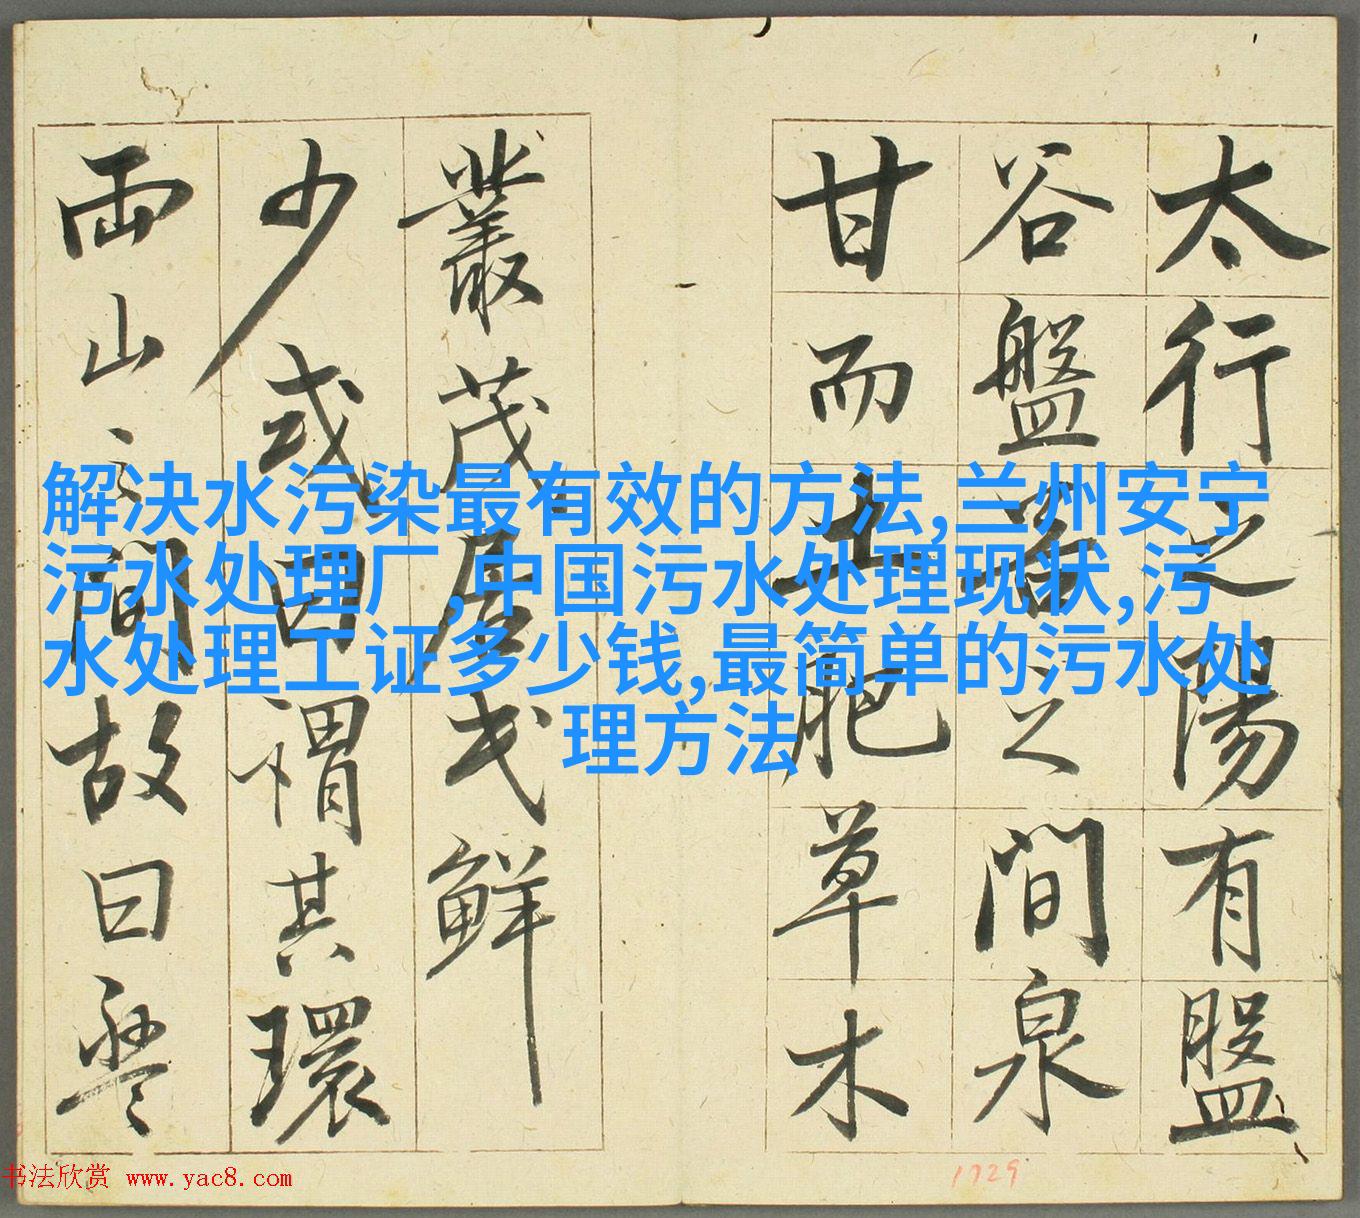 太行之陽有盤
谷盤谷之間泉
甘而土肥草木
叢茂居民鮮
少或曰謂其環
兩山之間故曰盤
解决水污染最有效的方法,兰州安宁
污水处理厂,中国污水处理现状,污
水处理工证多少钱,最简单的污水处
理方法
书法欣赏 www.yac8.com
1729